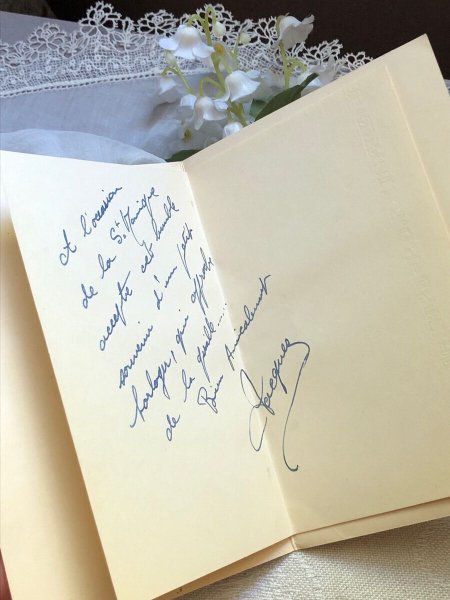 A l'occasion
de la St. Monique
accepte cet humble
souvenir d'un petit
horloger, qui approche
de la quille.....
Bien Amicalement
Jacques